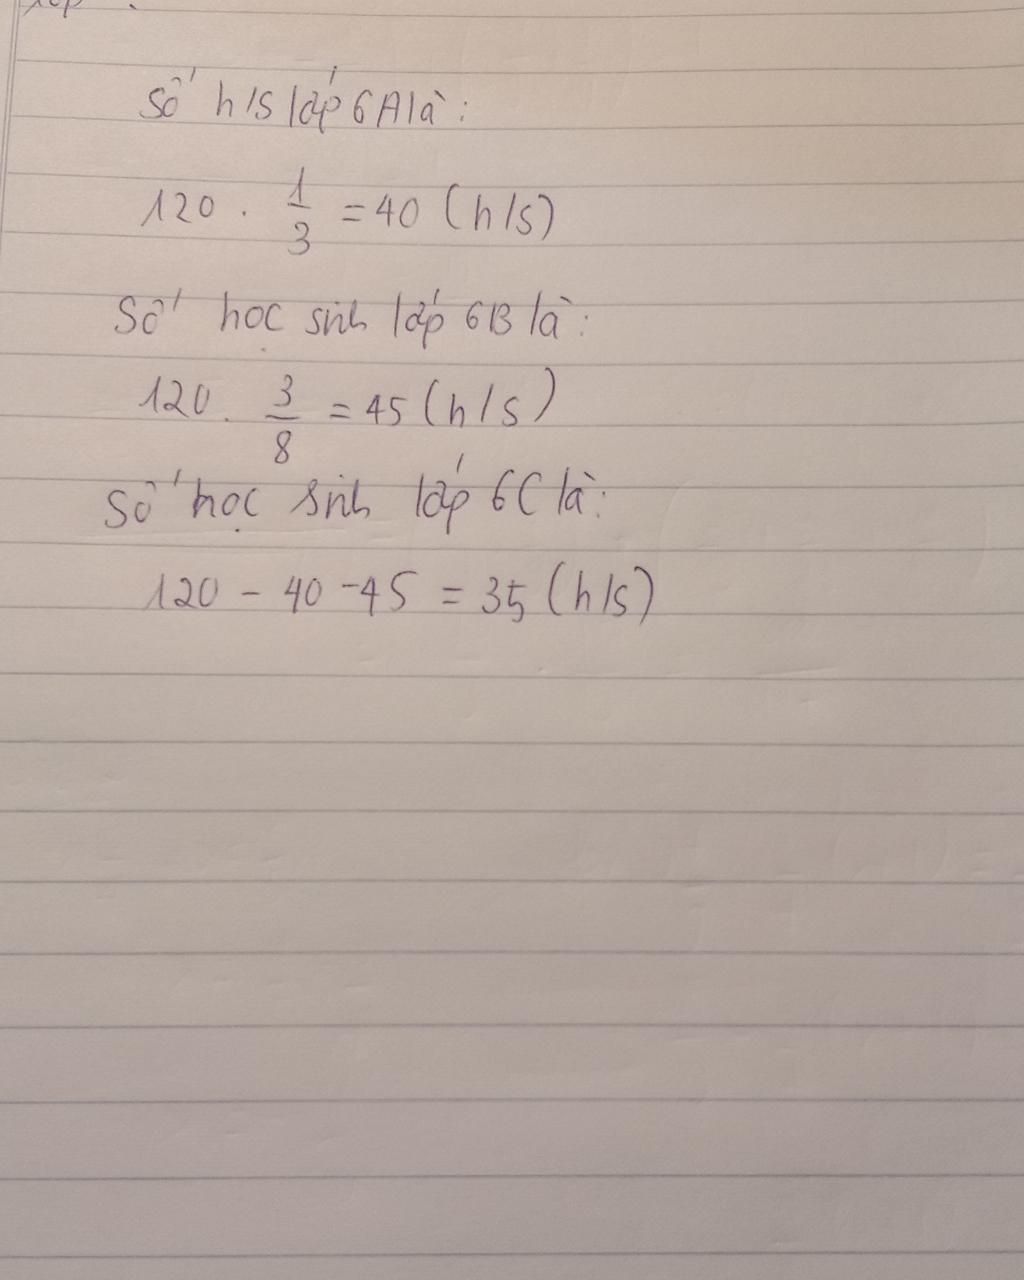 Số h/s lớp 6A là:
120 . 1/3 = 40 (h/s)
Số học sinh lớp 6B là:
120 . 3/8 = 45 (h/s)
Số học sinh lớp 6C là:
120 - 40 - 45 = 35 (h/s)